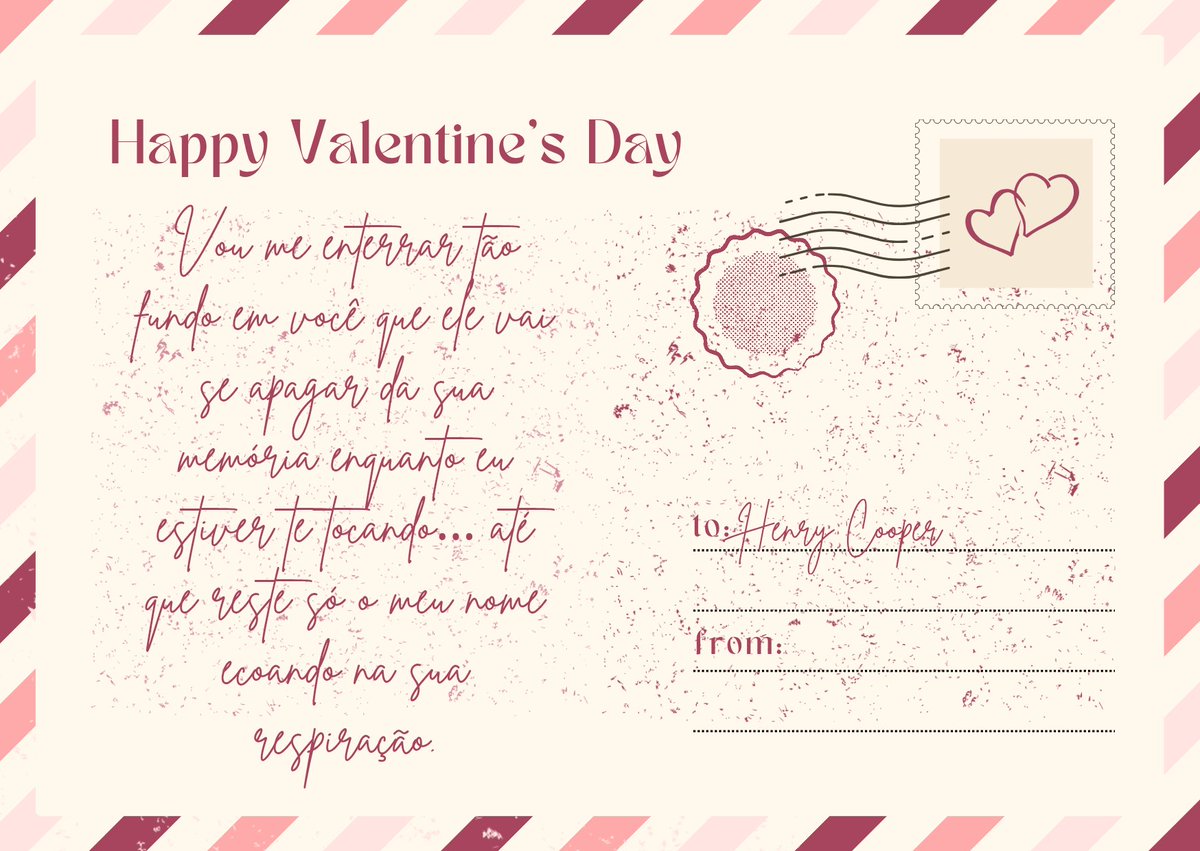 Happy Valentine's Day
Vou me enterrar tão
fundo em você que ele vai
se apagar da sua
memória enquanto eu
estiver te tocando... até
que reste só o meu nome
ecoando na sua
respiração.
to: Henry Cooper
from: